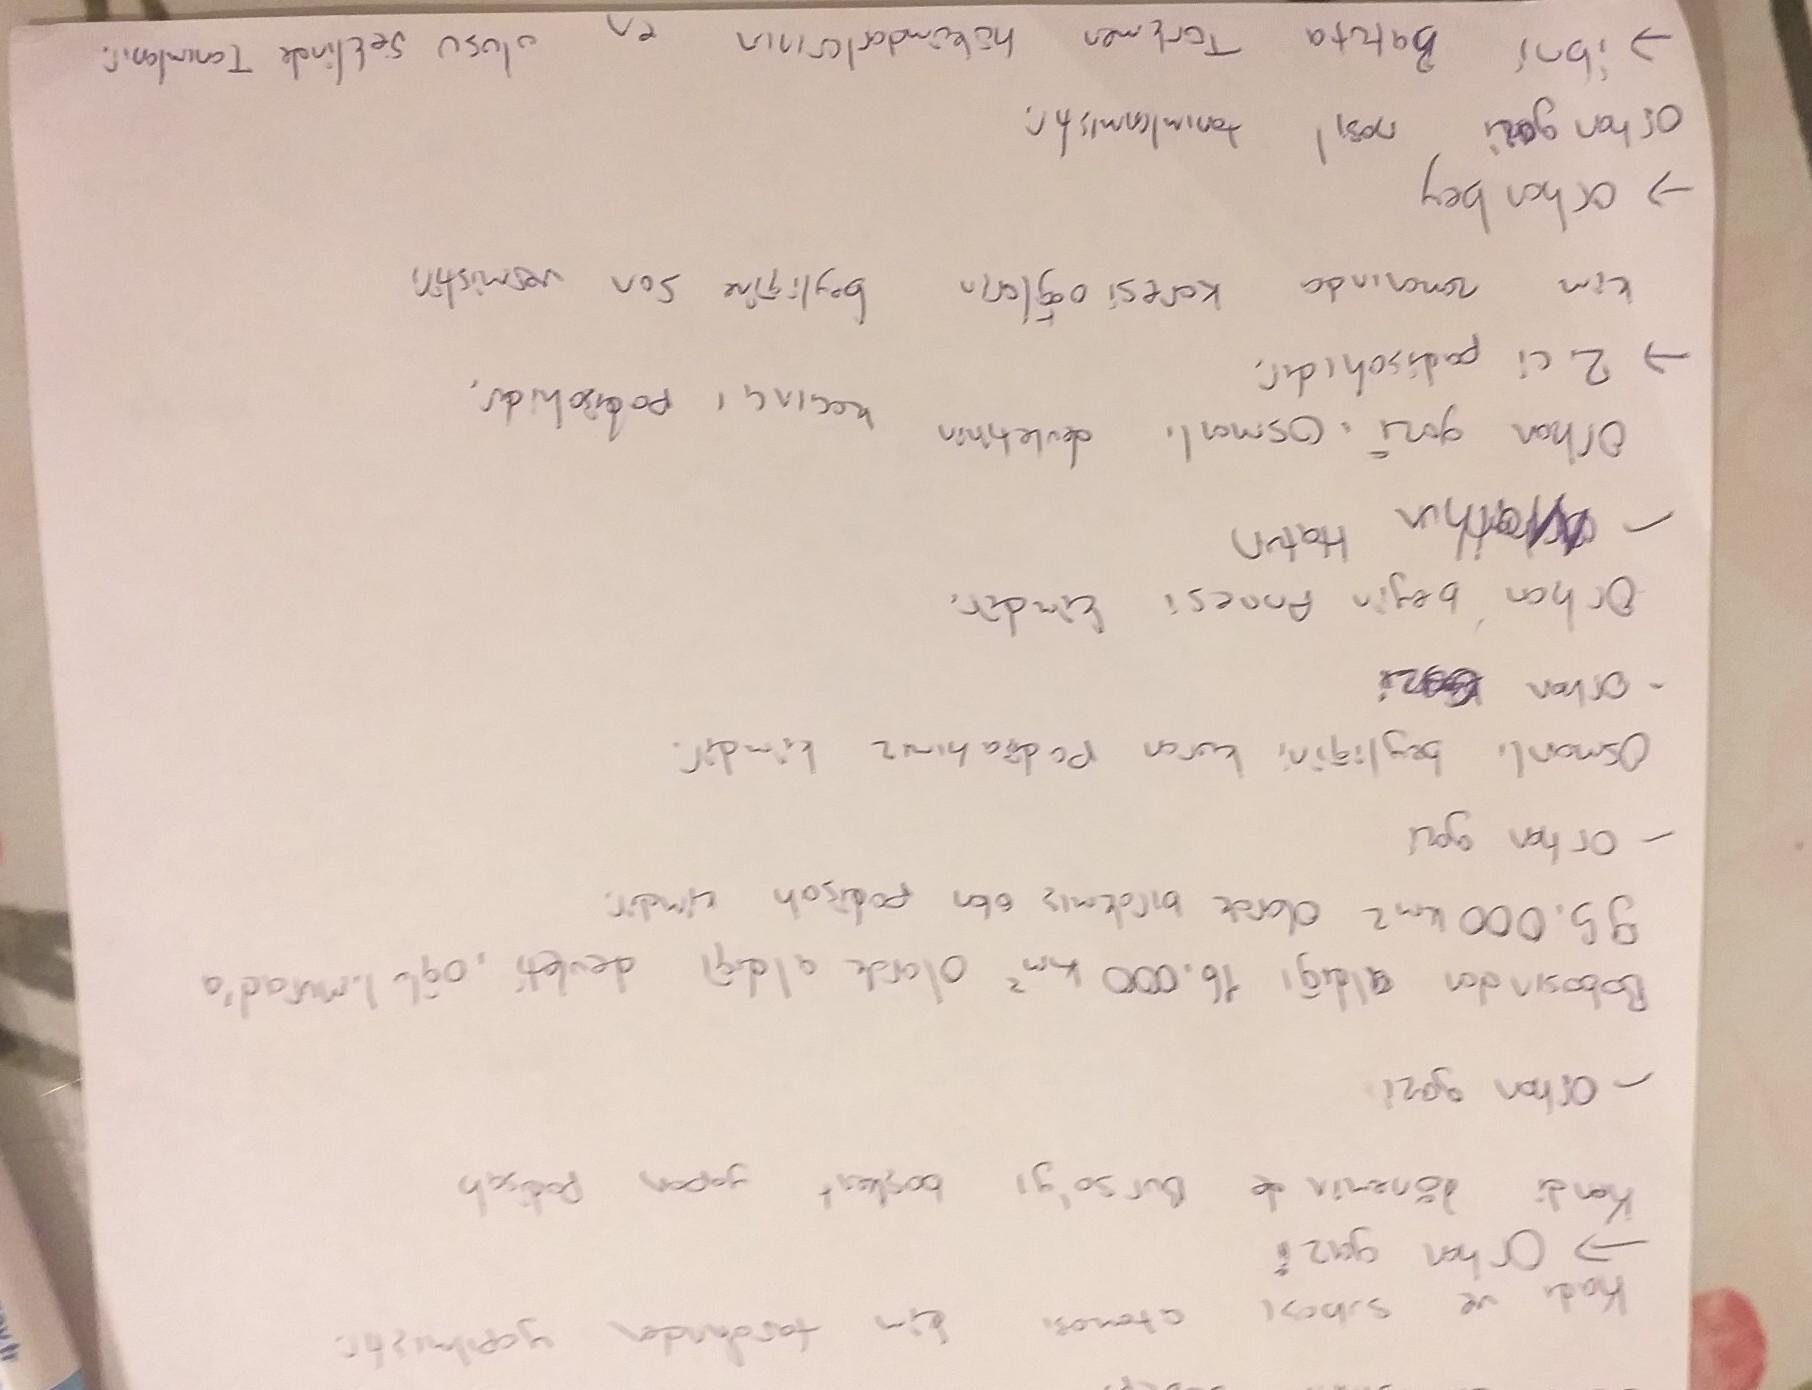 Kadı ve subaşı ataması kim tarafından yapılmıştır.
→ Orhan gazi
Kendi döneminde Bursa'yı başkent yapan Padişah
- Orhan gazi
Babasından aldığı 16.000 km² olarak aldığı devleti, oğlu I.Murad'a
95.000 km2 olarak bırakmış olan padişah kimdir.
- Orhan gazi
Osmanlı beyliğini kuran Padişahımız kimdir.
- Orhan gazi
Orhan beyin Annesi kimdir.
- Hatun
Orhan gazi Osmanlı devletinin kaçıncı padişahıdır.
→ 2. ci padişahıdır.
kim zamanında Karesi oğlları beyliğine son vermiştir
→ Orhan bey
Orhan gazi nasıl tanımlanmıştır.
→ ibni Batuta Türkmen hükümdarlarının en ulusu şeklinde Tanımlanır.